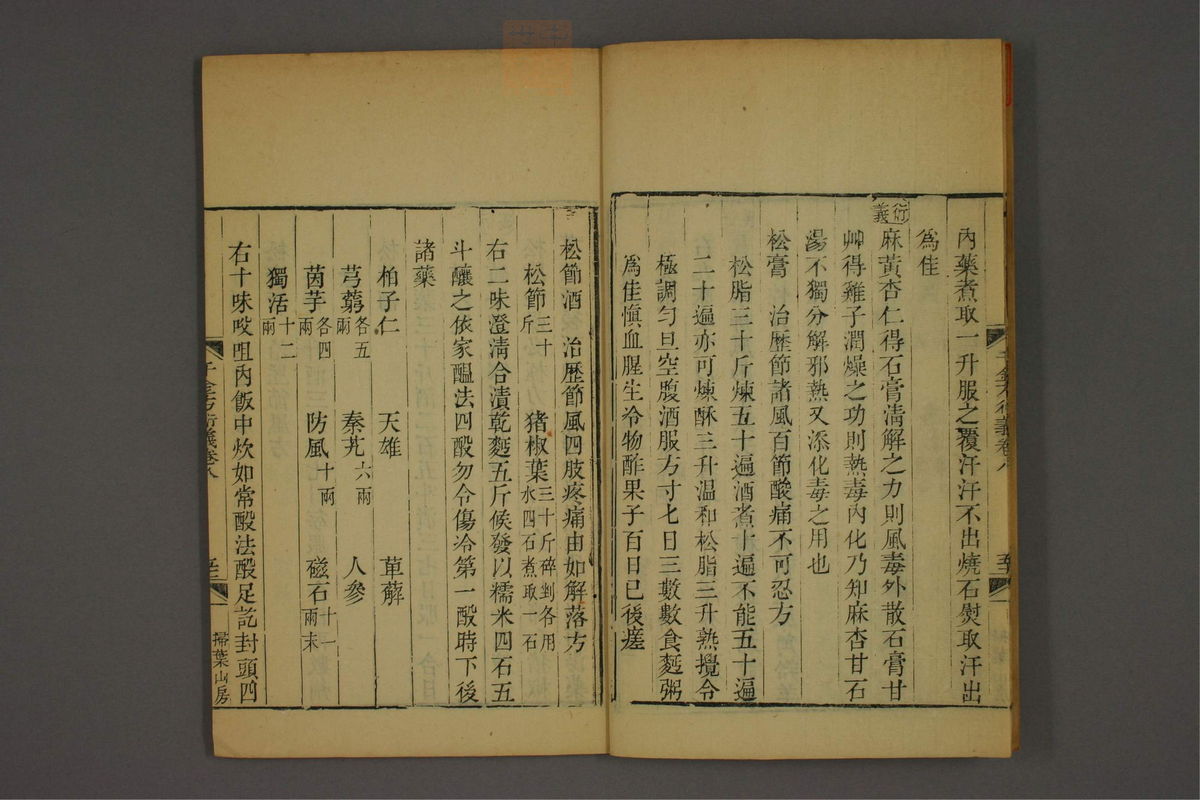 內藥煮取一升服之覆汗汗不出燒石熨取汗出
爲佳
衍義
麻黃杏仁得石膏淸解之力則風毒外散石膏甘
艸得雞子潤燥之功則熱毒內化乃知麻杏甘石
湯不獨分解邪熱又添化毒之用也
松膏 治歷節諸風百節酸痛不可忍方
松脂三十斤煉五十遍酒煮十遍不能五十遍
二十遍亦可煉酥三升溫和松脂三升熟攪令
極調勻旦空腹酒服方寸七日三數數食麪粥
爲佳愼血腥生冷物酢果子百日已後瘥
松節酒 治歷節風四肢疼痛由如解落方
松節三十斤 猪椒葉三十斤碎剉各用水四石煮取一石
右二味澄淸合漬乾麪五斤候發以糯米四石五
斗釀之依家醞法四酘勿令傷冷第一酘時下後
諸藥
柏子仁 天雄 萆薢
芎藭各五兩 秦艽六兩 人參
茵芋各四兩 防風十兩 磁石十一兩末
獨活十二兩
右十味㕮咀內飯中炊如常酘法酘足訖封頭四
千金方衍義卷八
掃葉山房